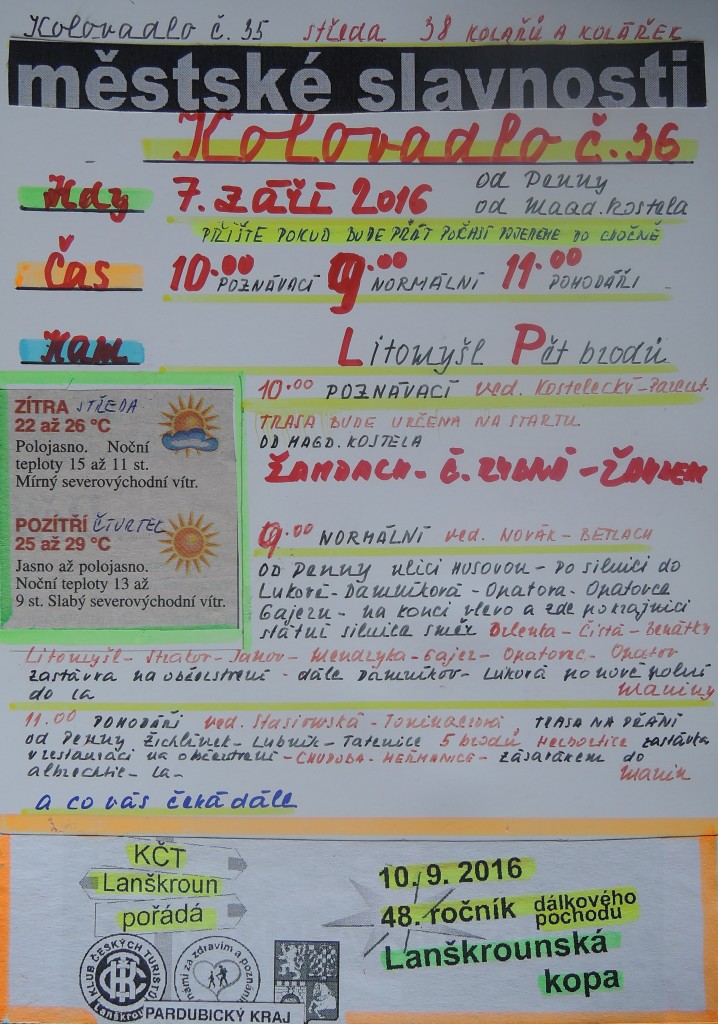 Kolovadlo č. 35 středa 38 KOLAŘŮ A KOLÁŘEK
městské slavnosti
Kolovadlo č. 36
Kdy 7. září 2016 od Penny
od Magd. Kostela
PŘÍŠTĚ POKUD BUDE PŘÁT POČASÍ POJEDEME DO CHOCNĚ
Čas 10.00 POZNÁVACÍ 9.00 NORMÁLNÍ 11.00 POHODÁŘI
Kam Litomyšl Pět brodů
10.00 POZNÁVACÍ ved. Kostelecký-
TRASA BUDE URČENA NA STARTU
OD MAGD. KOSTELA
ŽAMBACH - Č. RYBNÁ -
ZÍTRA STŘEDA
22 až 26 °C
Polojasno. Noční
teploty 15 až 11 st.
Mírný severovýchodní vítr.
POZÍTŘÍ ČTVRTEK
25 až 29 °C
Jasno až polojasno.
Noční teploty 13 až
9 st. Slabý severovýchodní vítr.
9.00 NORMÁLNÍ ved. NOVÁK - BETLACH
OD Penny ulicí HUSOVOU - Po silnici do
Luková - Damníková - Opatova - Opatovce
Gajeru - na konci vlevo a zde po krajnici
státní silnice směr - Čistá - Benátky
Litomyšl - Strakov - Janov - Mendryka - Gajer - Opatovec - Opatov
zastávka na občerstvení - dále Damníkov - Luková po nové polní
do La maniny
11.00 POHODÁŘI ved. Stasiowská - TRASA NA PŘÁNÍ
od Penny Žichlínek - Lubník - Tatenice 5 brodů Herbortice zastávka
v restauraci na občerstvení - CHUDOBA - HEŘMANICE - do
albrechtic - La - manin
a co vás čeká dále
KČT
Lanškroun
pořádá
10. 9. 2016
48. ročník dálkového
pochodu
Lanškrounská
kopa
KLUB ČESKÝCH TURISTŮ
Lanškroun
námi za zdravím a poznáním
PARDUBICKÝ KRAJ